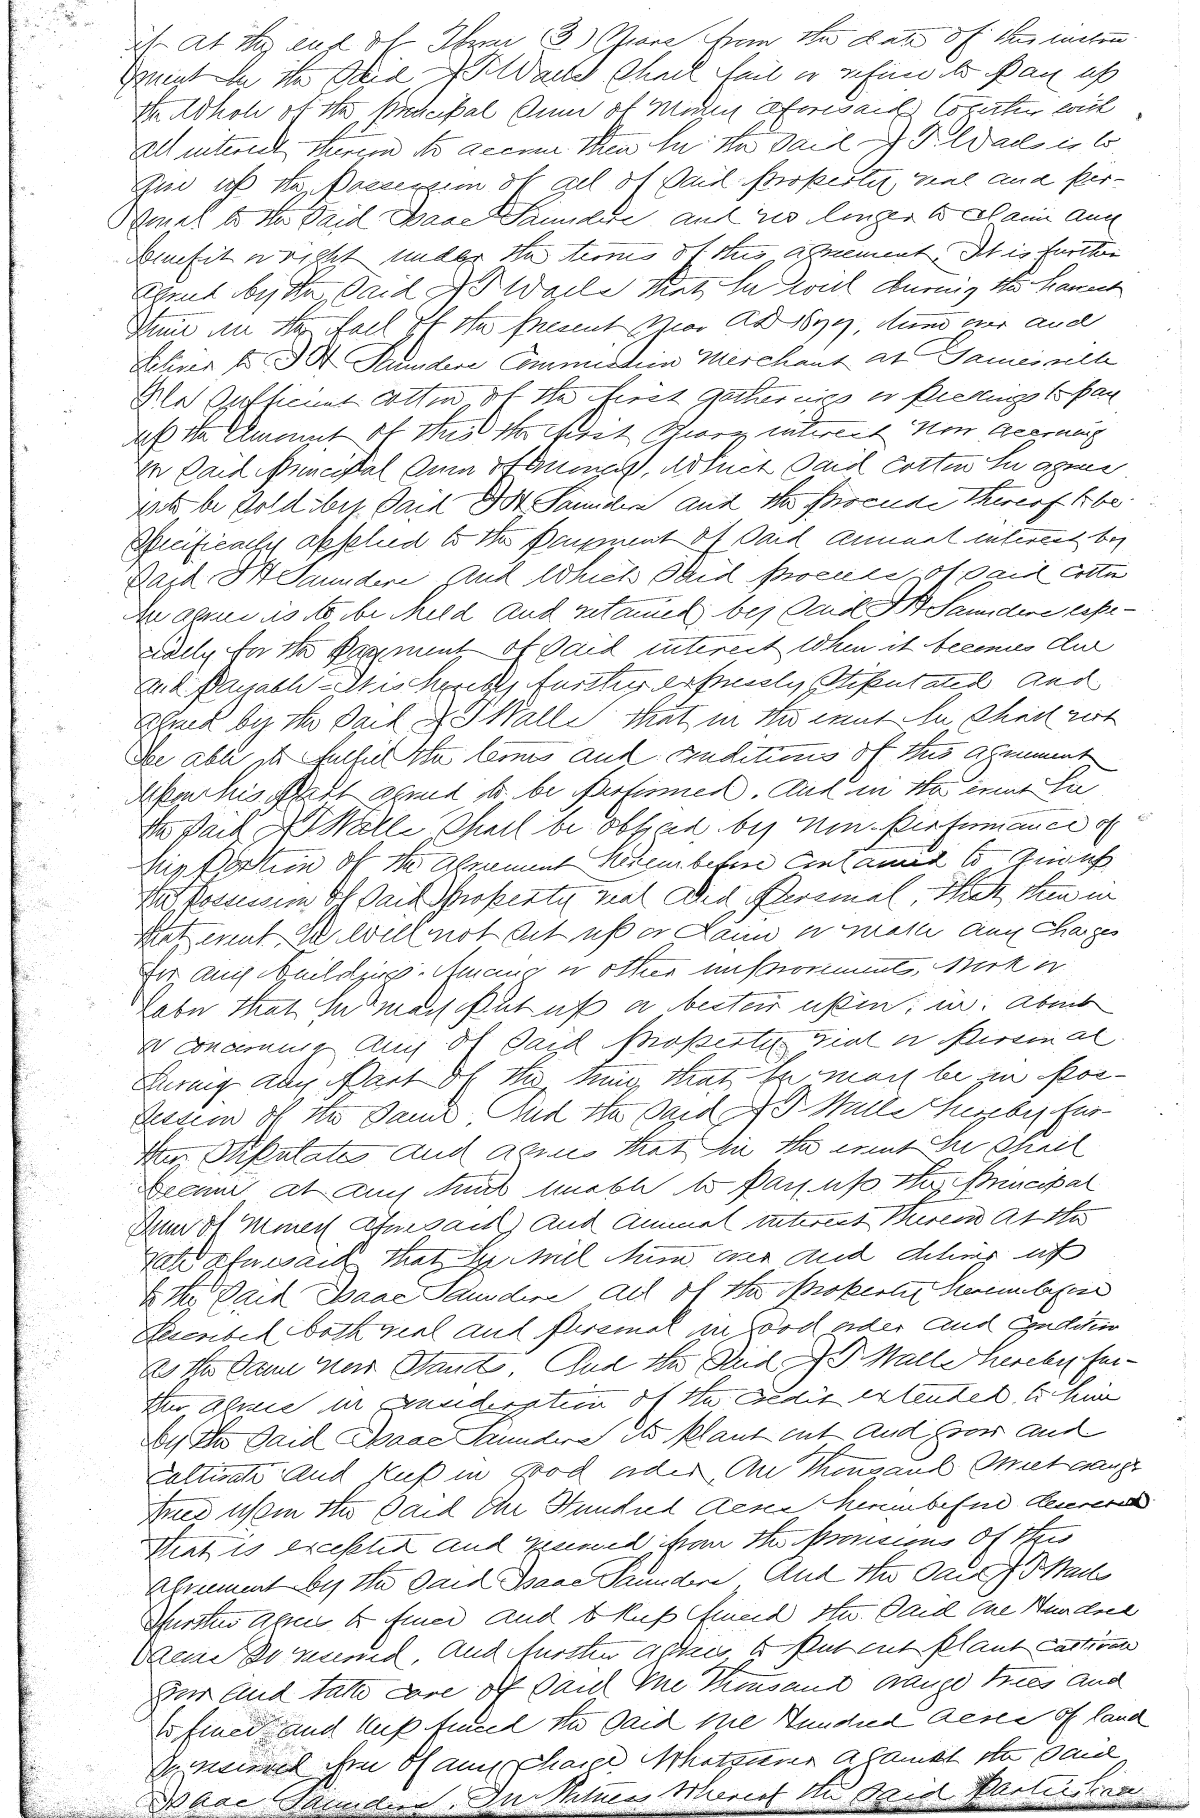 if at the end of Three (3) Years from the date of this instru-
ment he the Said J T Walls Shall fail or refuse to Pay up
the Whole of the principal Sum of Money aforesaid together with
all interest thereon to accrue then he the Said J T Walls is to
give up the Possession of all of Said property real and per-
sonal to the Said Isaac Saunders and no longer to claim any
benefit or right under the terms of this agreement. It is further
agreed by the Said J T Walls that he will during the harvest
time in the fall of the present Year AD 1879, turn over and
deliver to J H Saunders Commission Merchant at Gainesville
Fla Sufficient cotton of the first gatherings or pickings to pay
up the Amount of this the first Years interest now accruing
on Said principal Sum of Money, Which Said cotton he agrees
is to be Sold by Said J H Saunders and the proceeds thereof to be
Specifically applied to the payment of Said annual interest by
Said J H Saunders And Which Said proceeds of Said Cotton
he agrees is to be held and retained by Said J H Saunders espe-
cially for the Payment of Said interest When it becomes due
and payable - It is hereby further expressly Stipulated and
agreed by the Said J T Walls that in the event he Shall not
be able to fulfill the terms and conditions of this agreement
upon his part agreed to be performed. And in the event he
the Said J T Walls Shall be obliged by non-performance of
his portion of the agreement hereinbefore contained to give up
the possession of Said property real and Personal, that then in
that event he will not Set up or Claim or make any Charges
for any buildings, fencing or other improvements, Work or
labor that he may Put up or bestow upon, in, about
or concerning any of Said property real or Personal
during any Part of the time that he may be in pos-
session of the Same. And the Said J T Walls hereby fur-
ther Stipulates and agrees that in the event he Shall
become at any time unable to Pay up the Principal
Sum of Money aforesaid and annual interest thereon at the
rate aforesaid that he will turn over and deliver up
to the Said Isaac Saunders all of the property hereinbefore
described both real and personal in good order and condition
as the Same now Stands. And the Said J T Walls hereby fur-
ther agrees in consideration of the credit extended to him
by the Said Isaac Saunders to plant out and grow and
cultivate and keep in good order One Thousand Sweet orange
trees upon the Said One Hundred acres hereinbefore described
that is excepted and reserved from the provisions of this
agreement by the Said Isaac Saunders And the Said J T Walls
further agrees to fence and to keep fenced the Said One Hundred
acres So reserved, and further agrees to put out plant cultivate
grow and take care of Said One Thousand orange trees and
to fence and keep fenced the Said One Hundred acres of land
So reserved free of any charge Whatsoever against the Said
Isaac Saunders. In Witness Whereof the Said Parties have